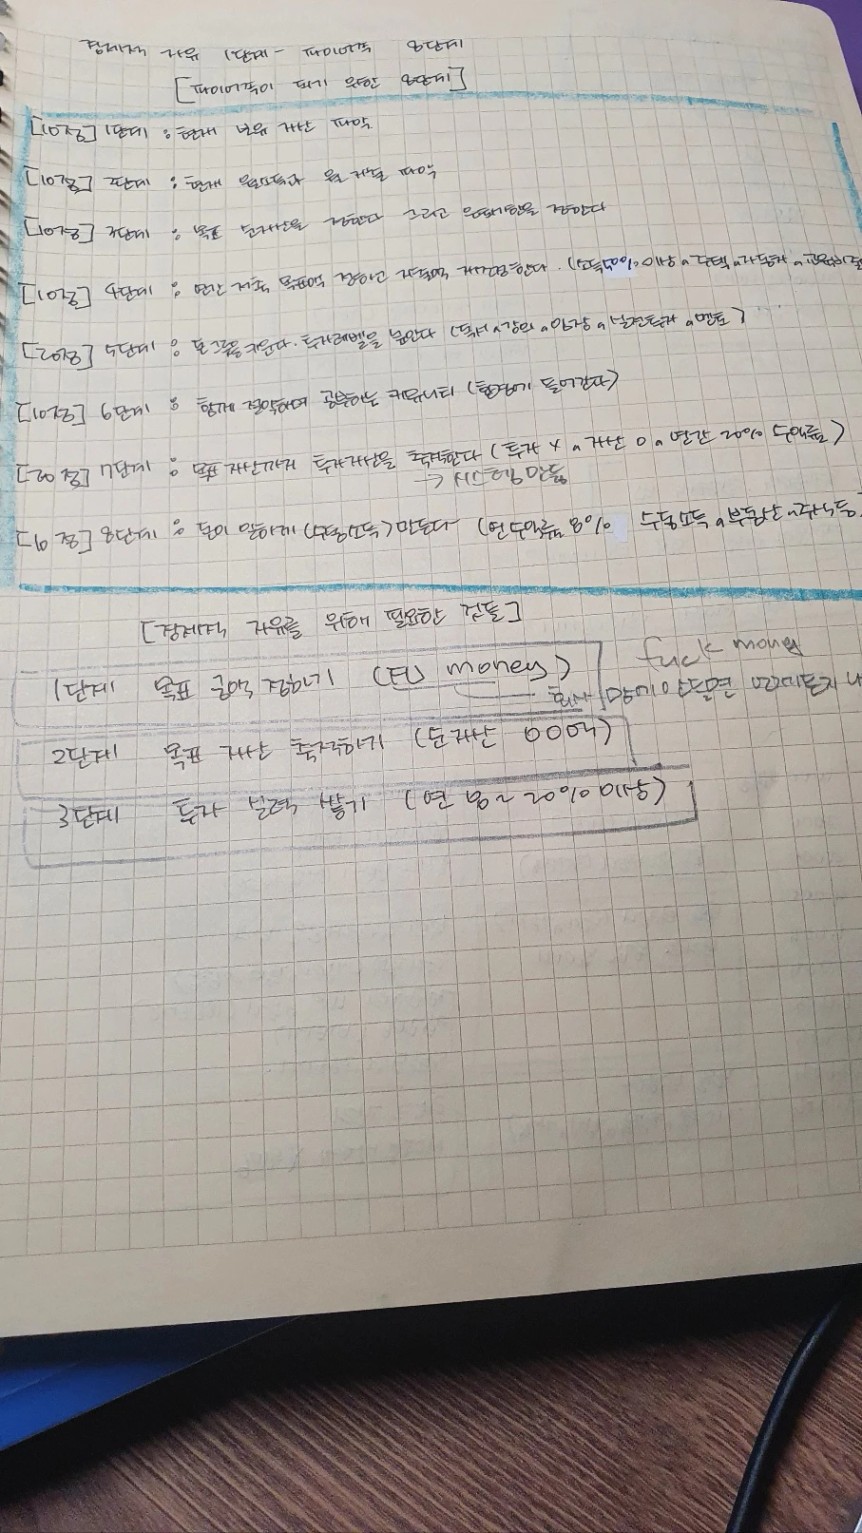 경제적 자유 1단계 - 파이어족 8단계
[파이어족이 되기 위한 8단계]
[10점] 1단계 : 현재 보유 자산 파악
[10점] 2단계 : 현재 월소득과 월 지출 파악
[10점] 3단계 : 목표 순자산을 정한다 그리고 은퇴시점을 정한다
[10점] 4단계 : 연간 저축 목표액 정하고 지독하게 절약한다. (소득 50% 이상, 주택, 자동차, 교육비 등
[20점] 5단계 : 몸그릇을 키운다. 투자레벨을 높인다 (독서, 강의, 임장, 실전투자, 멘토)
[10점] 6단계 : 함께 절약하며 공부하는 커뮤니티 (환경에 들어간다)
[20점] 7단계 : 목표 자산까지 투자자산을 축적한다 (투자 X, 자산 O, 연간 20% 수익률)
→ 시스템 만듦
[10점] 8단계 : 돈이 일하게 (수동소득) 만든다 (연수익률 8% 수동소득, 부동산, 주식 등
[경제적 자유를 위해 필요한 것들]
1단계 목표 금액 정하기 (FU money) fuck money
회사
2단계 목표 자산 축적하기 (순자산 000억)
3단계 투자 실력 쌓기 (연 8~20% 이상)